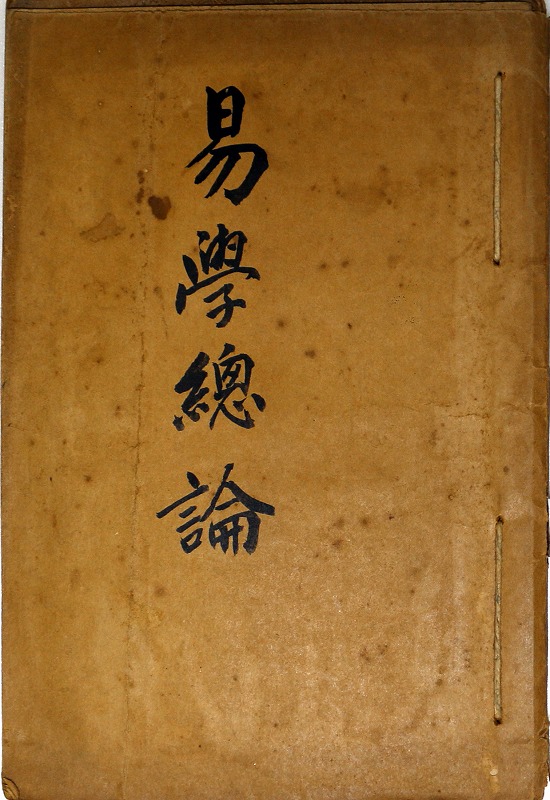 易學總論